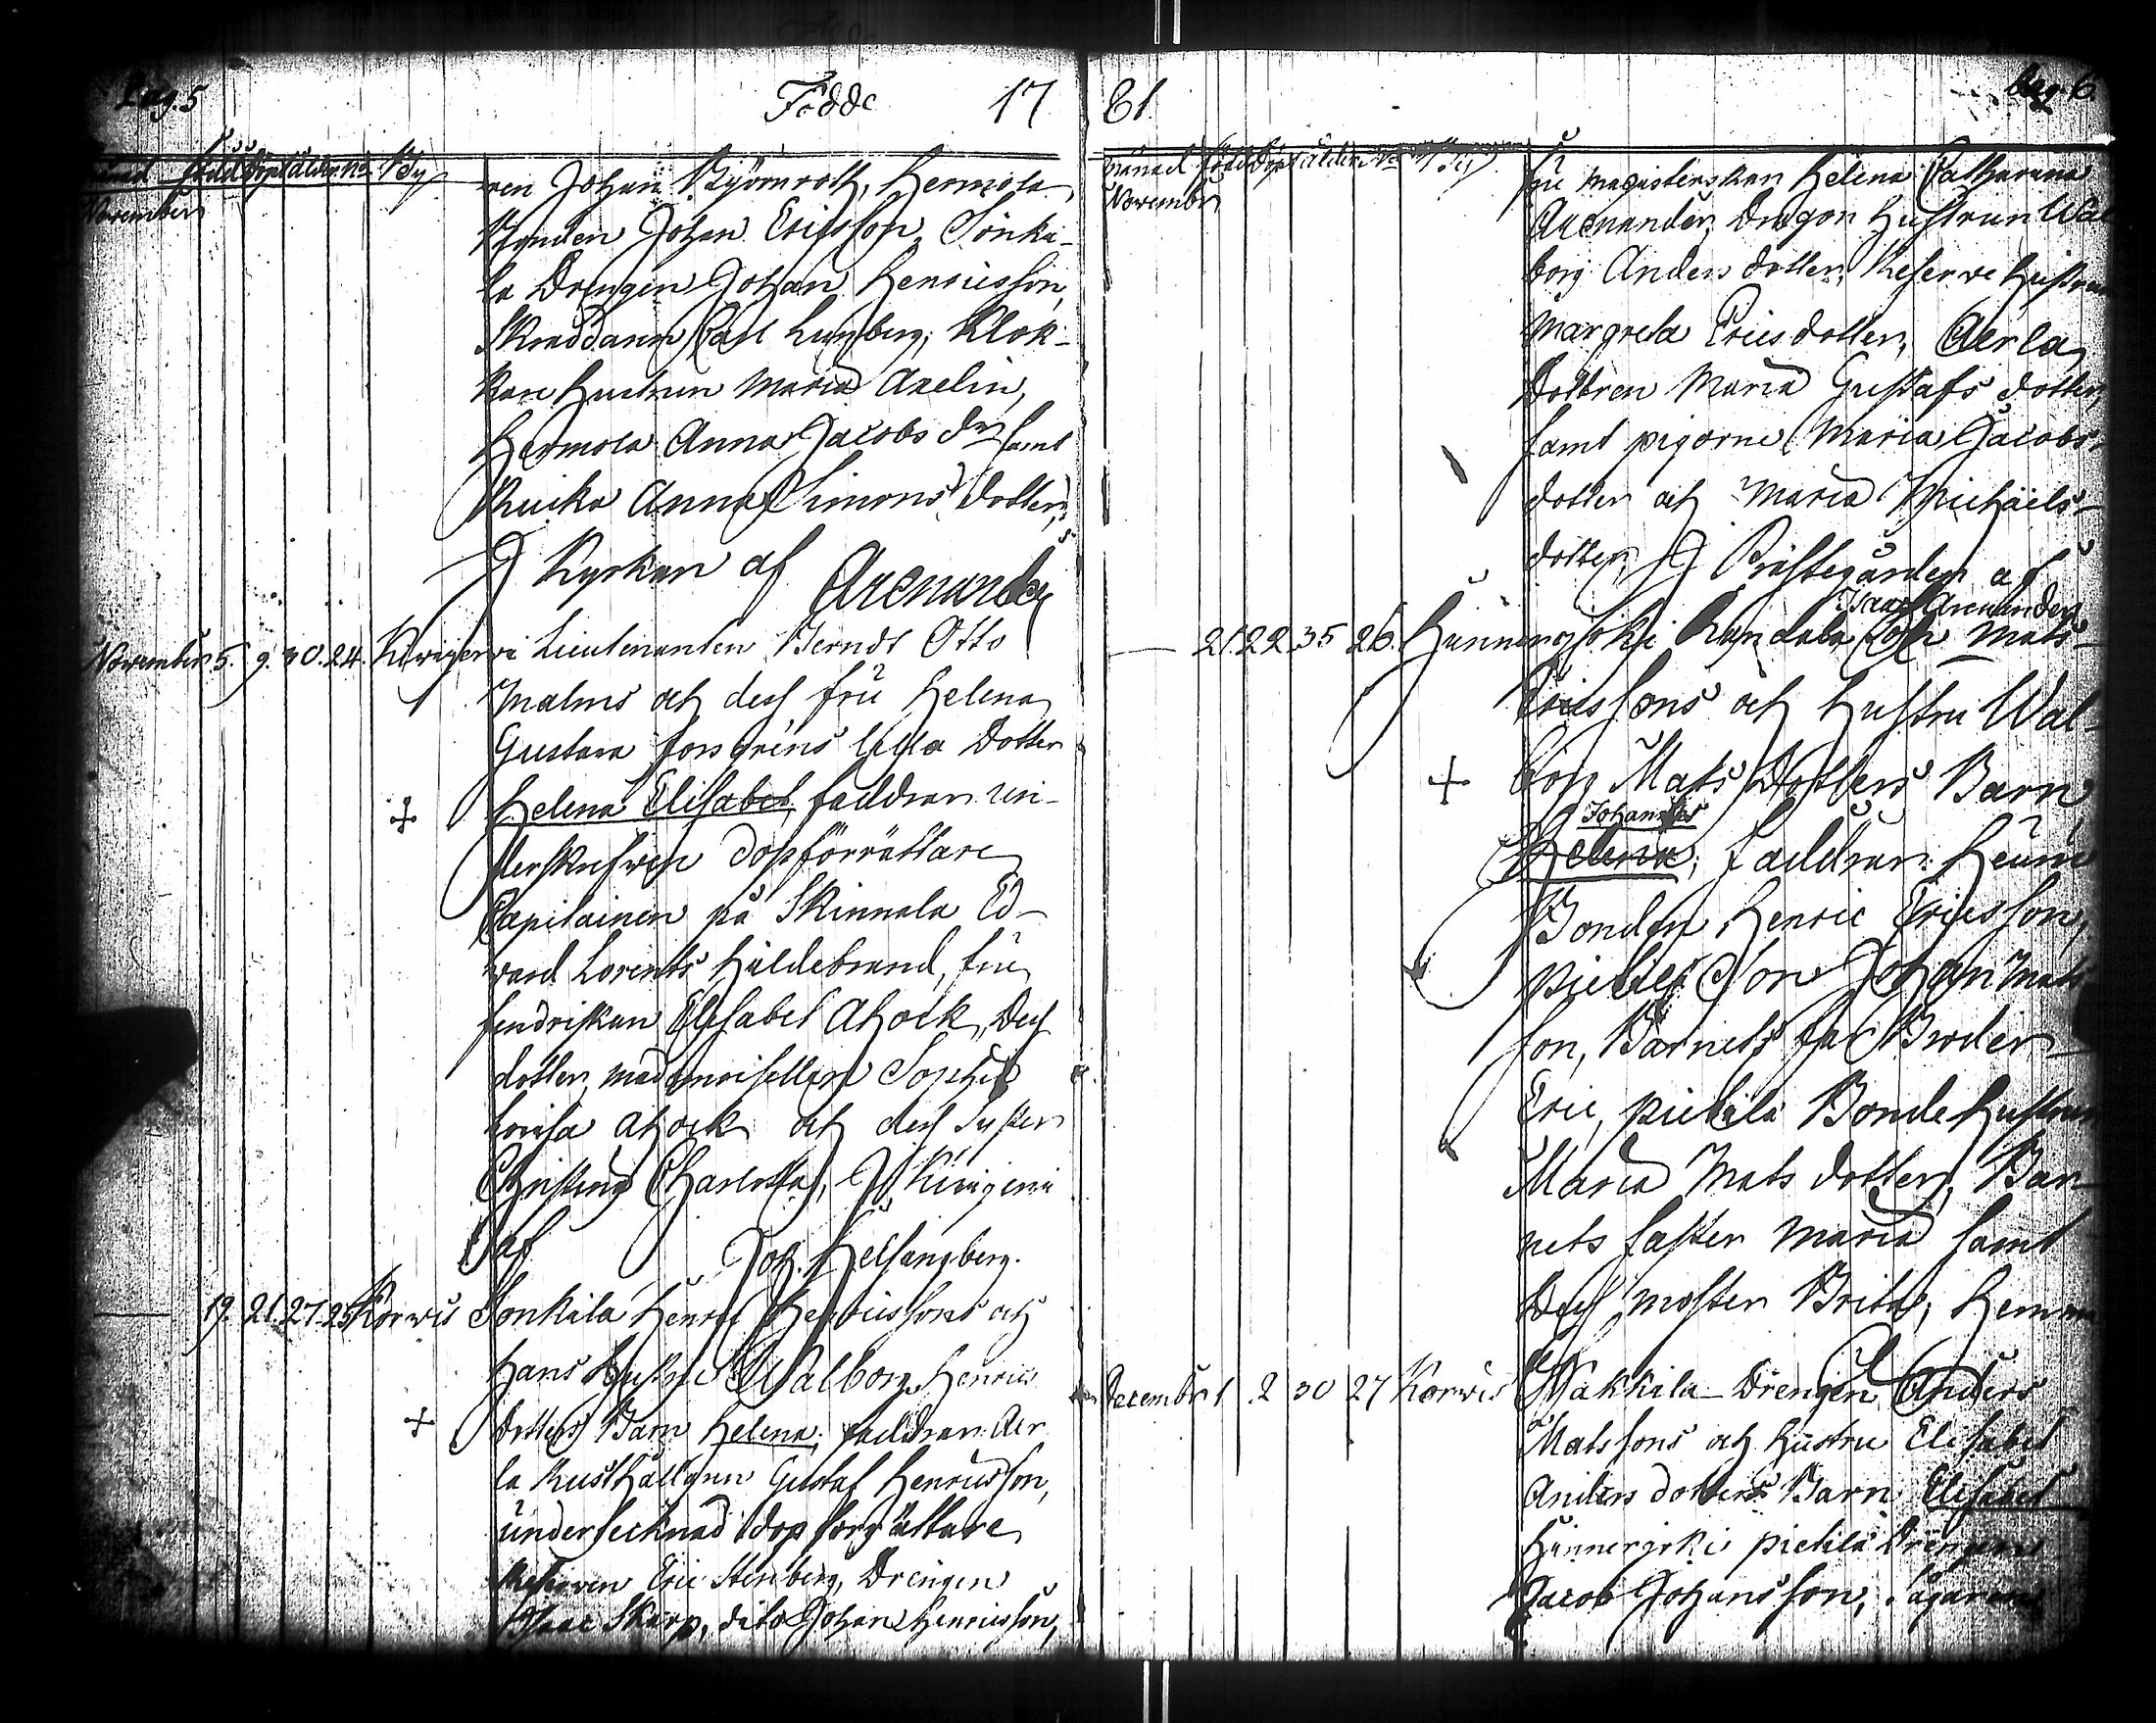 Pag. 5
Födde 17
född döpt ålder No By
November
ren Johan Byömroth, Hermola
Bonden Johan Ericsson, Sonki-
la Drengen Johan Henricsson,
Skreddaren Carl Lungberg, Klok-
kare Hustrun Maria Axelin,
Hermola Anna Jacobs dr samt
Anna Simons dotter,
I Kyrkan af
Arenander
November 5. 9. 30. 24. Lieutenanten Berndt Otto
Malms och dess fru Helena
Gustava forsgréns lilla Dotter
Helena Elisabet, faddran un-
derskrefwen dopförrättare
Capitainen på Skinnala Ed-
vard Lorentz Hildebrand, fru
fendriskan Elisabet Ahock, Dess
dotter, mademoisellen Sophia
Lovisa Ahock och dess Syster
Christina Charlotta, I
af Joh. Helsangberg.
19. 21. 27. 25 Korwis Sonkila Henric Henricssons och
Hans Hustru Walborg Henrics
Dotters Barn Helena, faddran Aer
la Rusthållaren Gustaf Henricsson,
undertecknad dopförrättare
Eric Stenberg, Drengen
Isaac Skarp, dito Johan Henricsson,
61.
Pag. 6
månad född döpt ålder No By
November
fru Magisterskan Helena Catharina
Arenander, Dragon Hustrun Wal
borg Anders dotter, Reserve Hustrun
Margreta Erics dotter, Aerla
Dottren Maria Gustafs dotter,
samt pigorne Maria Jacobs-
dotter och Maria Michaels-
dotter, I Prästegården af
Isaac Arenander
21. 22. 35 26. Mats
Ericssons och Hustru Wal-
borg Mats Dotters Barn
Johannes
Helena, faddran:
Bonden Henric Ericsson,
Son Johan Mats
son, Barnets far Broder
Eric, pietilä Bonde Hustrun
Maria Mats dotter, Bar-
nets faster Maria samt
Dess moster Brita, Hemma
December 1. 2 30 27 Korwis Makkila Drengen Anders
Matssons och Hustru Elisabet
Anders dotters Barn Elisabet
pietilä Drengen
Jacob Johansson,